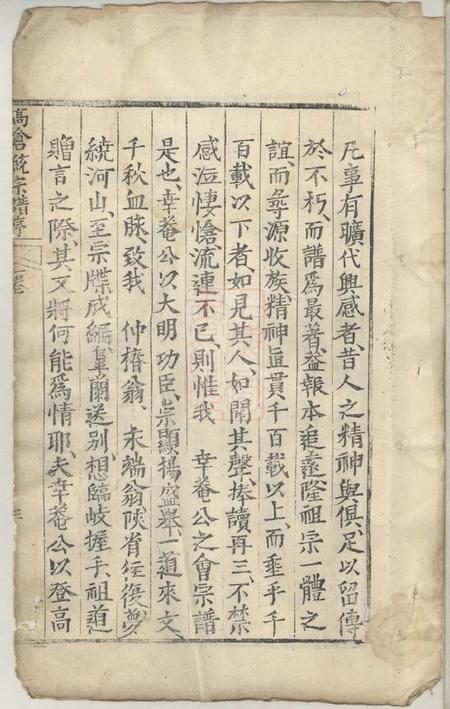 凡事有曠代興感者、昔人之精神與俱、足以留傳
於不朽、而譜爲最著、益報本追遠、隆祖宗一體之
誼、而尋源收族、精神直貫千百載以上、而垂乎千
百載以下者、如見其人、如聞其聲、捧讀再三、不禁
感泣悽愴流連不已、則惟我 幸菴公之會宗譜
是也、幸菴公以大明功臣、崇顯揚盛舉、一道來文、
千秋血脉、致我 仲楷翁、末端翁陝省往復、夢
繞河山、至宗牒成編、皐蘭送别、想臨岐握手、祖道
贈言之際、其又將何能爲情耶、夫幸菴公以登高
高倉統宗譜序 卷